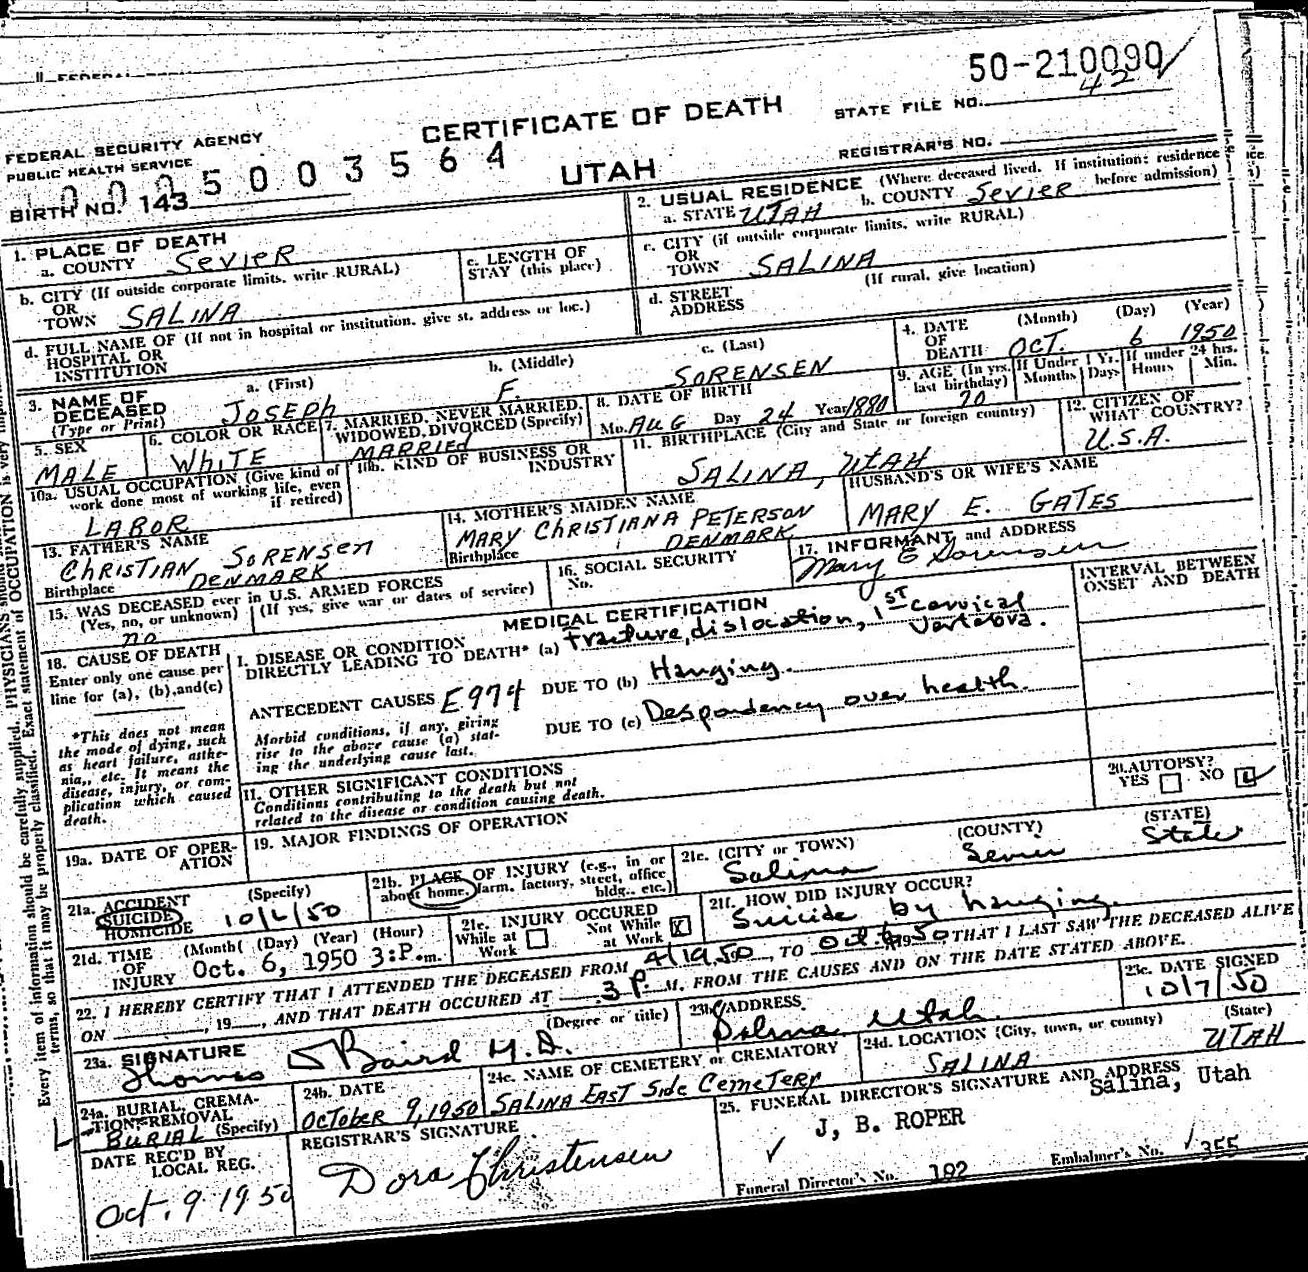 50-210090
42
STATE FILE NO.
CERTIFICATE OF DEATH
FEDERAL SECURITY AGENCY
PUBLIC HEALTH SERVICE
REGISTRAR'S NO.
UTAH
5 0 0 3 5 6 4
BIRTH NO. 143
1. PLACE OF DEATH
a. COUNTY SEVIER
2. USUAL RESIDENCE (Where deceased lived. If institution: residence before admission)
a. STATE UTAH b. COUNTY SEVIER
b. CITY (If outside corporate limits, write RURAL)
OR
TOWN SALINA
c. LENGTH OF
STAY (this place)
c. CITY (if outside corporate limits, write RURAL)
OR
TOWN SALINA
d. FULL NAME OF (If not in hospital or institution, give st. address or loc.)
HOSPITAL OR
INSTITUTION
d. STREET
ADDRESS
(If rural, give location)
3. NAME OF
DECEASED
(Type or Print)
a. (First) JOSEPH
b. (Middle) F.
c. (Last) SORENSEN
4. DATE
OF
DEATH
(Month) (Day) (Year)
OCT. 6 1950
5. SEX
MALE
6. COLOR OR RACE
WHITE
7. MARRIED, NEVER MARRIED,
WIDOWED, DIVORCED (Specify)
MARRIED
8. DATE OF BIRTH
Mo. AUG Day 24 Year 1880
9. AGE (In yrs. last birthday)
70
If Under 1 Yr.
Months Days
If under 24 hrs.
Hours Min.
10a. USUAL OCCUPATION (Give kind of
work done most of working life, even
if retired)
LABOR
10b. KIND OF BUSINESS OR
INDUSTRY
11. BIRTHPLACE (City and State or foreign country)
SALINA, UTAH
12. CITIZEN OF
WHAT COUNTRY?
U.S.A.
13. FATHER'S NAME
CHRISTIAN SORENSEN
Birthplace DENMARK
14. MOTHER'S MAIDEN NAME
MARY CHRISTIANA PETERSON
Birthplace DENMARK
HUSBAND'S OR WIFE'S NAME
MARY E. GATES
15. WAS DECEASED ever in U.S. ARMED FORCES
(Yes, no, or unknown) (If yes, give war or dates of service)
no
16. SOCIAL SECURITY
No.
17. INFORMANT and ADDRESS
Mary E Sorensen
MEDICAL CERTIFICATION
INTERVAL BETWEEN
ONSET AND DEATH
18. CAUSE OF DEATH
Enter only one cause per
line for (a), (b), and (c)
*This does not mean
the mode of dying, such
as heart failure, asthe-
nia, etc. It means the
disease, injury, or com-
plication which caused
death.
I. DISEASE OR CONDITION
DIRECTLY LEADING TO DEATH* (a) Fracture, dislocation, 1ST cervical
Vertebra.
ANTECEDENT CAUSES E974 DUE TO (b) Hanging.
Morbid conditions, if any, giving
rise to the above cause (a) stat-
ing the underlying cause last.
DUE TO (c) Despondency over health.
11. OTHER SIGNIFICANT CONDITIONS
Conditions contributing to the death but not
related to the disease or condition causing death.
20. AUTOPSY?
YES NO
19a. DATE OF OPER-
ATION
19. MAJOR FINDINGS OF OPERATION
21a. ACCIDENT
SUICIDE
HOMICIDE
(Specify)
10/6/50
21b. PLACE OF INJURY (e.g., in or
about home, farm, factory, street, office
bldg., etc.)
21c. (CITY or TOWN) (COUNTY) (STATE)
Salina Sevier State
21d. TIME
OF
INJURY
(Month) (Day) (Year) (Hour)
Oct. 6, 1950 3:P.m.
21e. INJURY OCCURED
While at Work
Not While at Work X
21f. HOW DID INJURY OCCUR?
Suicide by hanging.
22. I HEREBY CERTIFY THAT I ATTENDED THE DECEASED FROM 4/1950, TO Oct 6 1950 THAT I LAST SAW THE DECEASED ALIVE
ON , 19 , AND THAT DEATH OCCURED AT 3 P. M. FROM THE CAUSES AND ON THE DATE STATED ABOVE.
23a. SIGNATURE (Degree or title)
Thomas J Baird M.D.
23b. ADDRESS
Salina Utah
23c. DATE SIGNED
10/7/50
24a. BURIAL, CREMA-
TION REMOVAL
(Specify)
BURIAL
24b. DATE
OCTOBER 9, 1950
24c. NAME OF CEMETERY or CREMATORY
SALINA EAST SIDE CEMETERY
24d. LOCATION (City, town, or county) (State)
SALINA UTAH
DATE REC'D BY
LOCAL REG.
Oct. 9 1950
REGISTRAR'S SIGNATURE
Dora Christensen
25. FUNERAL DIRECTOR'S SIGNATURE AND ADDRESS
J, B. ROPER Salina, Utah
Funeral Director's No. 182 Embalmer's No. 355
Every item of information should be carefully supplied. PHYSICIANS should
terms, so that it may be properly classified. Exact statement of OCCUPATION is very